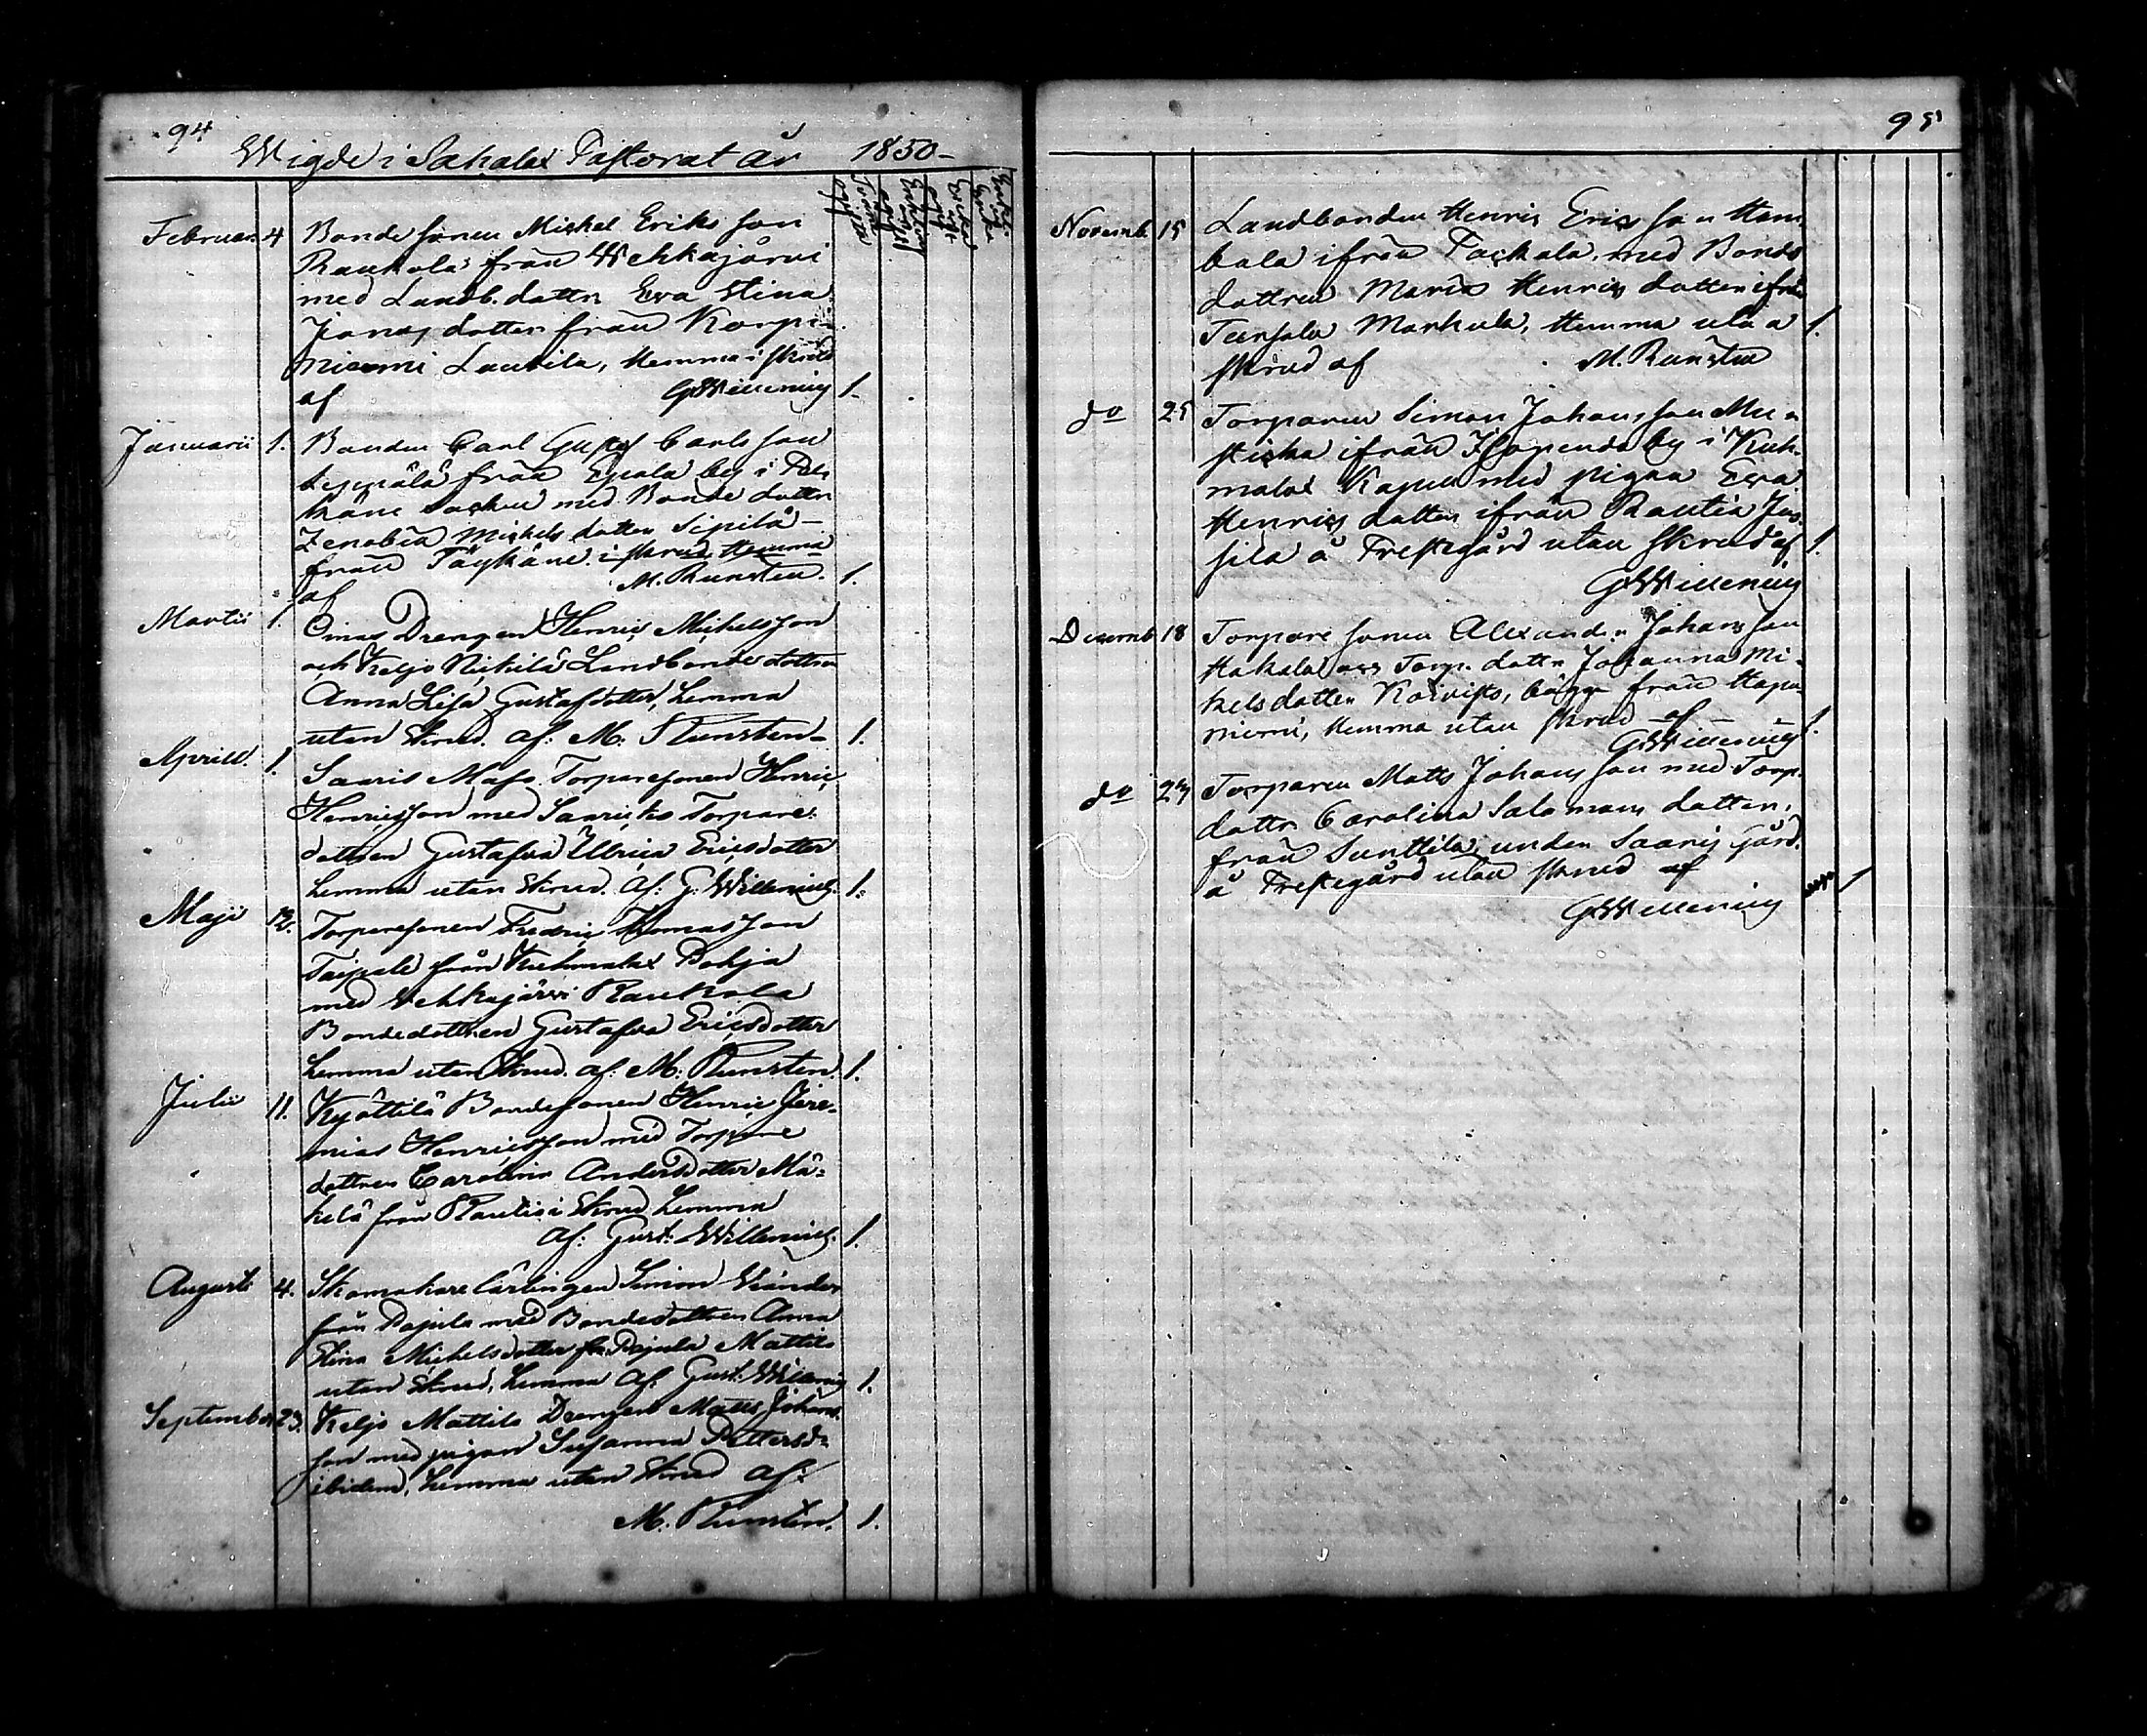 94
Wigde i Sahalax Pastorat år 1850-
Februari 4 Bonde sonen Mickel Eriks son
Raukola från Wehkajärvi
med Landb. dottr Eva Stina
Jonas dotter från Korpi-
niemi Lautila, Hemma i skrud
af GWillenius 1.
Januarii 1. Bonden Carl Gustaf Carls son
från Epaala by i Pel-
käne Socken med Bonde dottr
Zenobia Mickels dotter Sipilä -
från Täykäne i skrud Hemma
af M. Runsten. 1.
Martii 1. Drengen Henric Michelsson
och Keljo Nickilä Landbonde dottren
Anna Lisa Gustafsdotter, hemma
utan skrud. af: M: Runsten- 1.
Aprill. 1. Saaris Torparesonen Henric
Henricsson med Saaris Torpare-
dottren Gustafva Ulrica Ericsdotter
hemma utan skrud. af: G: Willenius. 1.
Maji 12. Torparesonen Fredric Thomasson
Taipale från Kuhmalax Pohja
med Vehkajärvi Raukola
Bondedottren Gustafva Ericsdotter
hemma utan skrud. af: M: Runsten. 1.
Julii 11. Kyöttilä Bondesonen Henric Jere-
mias Henricsson med Torpare
dottren Carolina Andersdotter Mä-
kelä från Rautio i skrud hemma
af: Gust: Willenius. 1.
Augusti 4. Skomakare lärlingen Simon
från Pajula med Bondedottren Anna
Stina Michelsdotter fr. Pajula Mattila
utan skrud, hemma af: Gust: Willenius 1.
September 23. Keljo Mattila Drengen Matts Johans-
son med pigan Susanna Pettersd:
ibidem, hemma utan skrud af:
M. Runsten. 1.
95
Novemb. 15 Landbonden Henric Erics son Ham-
bala ifrån Packala, med Bonde
dottren Maria Henrics dotter ifrån
Markula, Hemma utan 1.
skrud af M. Runsten
do 25 Torparen Simon Johans son Mu-
sticka ifrån by i Kuh-
malax Kapell med pigan Eva
Henrics dotter ifrån Rautio Jus-
sila å Prestegård utan skrud af 1.
GWillenius
Decemb 18 Torpare sonen Alexander Johans son
Hakala och Torp. dottr Johanna Mi-
kels dotter Koivisto, bägge från Hapa-
niemi, Hemma utan skrud af 1.
GWillenius
do 27 Torparen Matts Johans son med Torp.
dottr Carolina Salomons dotter,
från Sunttila under Saaris gård.
å Prestegård utan skrud af 1
GWillenius